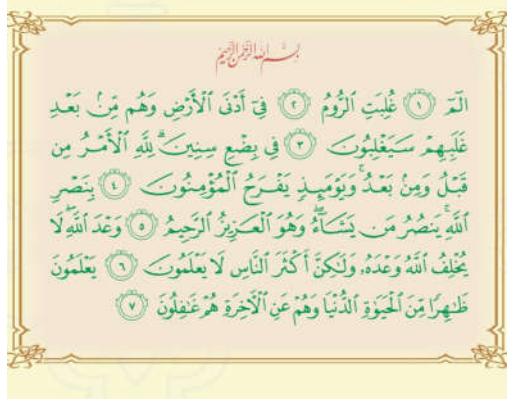 بِسْمِ اللَّهِ الرَّحْمَٰنِ الرَّحِيمِ
الٓمٓ ۝١ غُلِبَتِ ٱلرُّومُ ۝٢ فِىٓ أَدْنَى ٱلْأَرْضِ وَهُم مِّنۢ بَعْدِ
غَلَبِهِمْ سَيَغْلِبُونَ ۝٣ فِى بِضْعِ سِنِينَ ۗ لِلَّهِ ٱلْأَمْرُ مِن
قَبْلُ وَمِنۢ بَعْدُ ۚ وَيَوْمَئِذٍ يَفْرَحُ ٱلْمُؤْمِنُونَ ۝٤ بِنَصْرِ
ٱللَّهِ ۚ يَنصُرُ مَن يَشَآءُ ۖ وَهُوَ ٱلْعَزِيزُ ٱلرَّحِيمُ ۝٥ وَعْدَ ٱللَّهِ ۖ لَا
يُخْلِفُ ٱللَّهُ وَعْدَهُۥ وَلَٰكِنَّ أَكْثَرَ ٱلنَّاسِ لَا يَعْلَمُونَ ۝٦ يَعْلَمُونَ
ظَٰهِرًا مِّنَ ٱلْحَيَوٰةِ ٱلدُّنْيَا وَهُمْ عَنِ ٱلْءَاخِرَةِ هُمْ غَٰفِلُونَ ۝٧